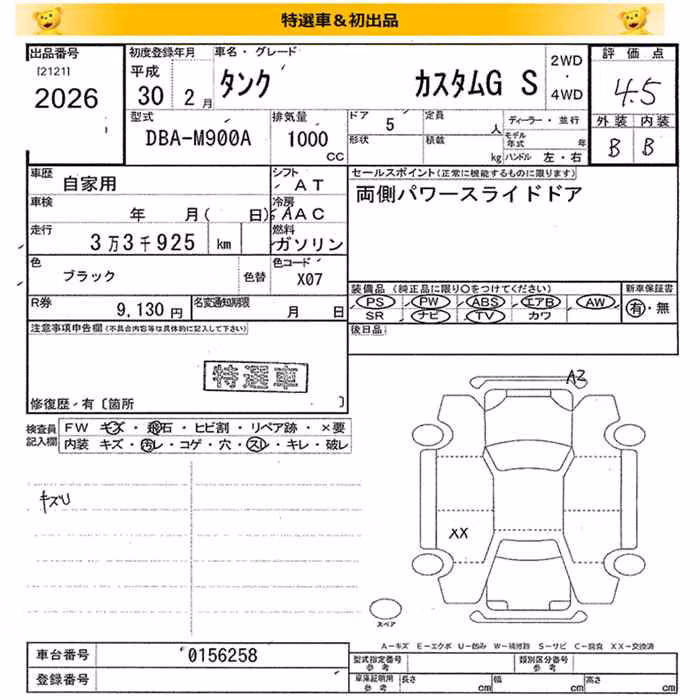 特選車＆初出品
出品番号 初度登録年月 車名・グレード 2WD・4WD 評価点
[2121] 平成
2026 30 2月 タンク カスタムG S 4.5
型式 排気量 ドア 定員 ディーラー・並行 外装 内装
DBA-M900A 1000 cc 5 人 モデル年式 年 B B
形状 積載 kg ハンドル 左・右
車歴 シフト セールスポイント(正常に機能するものに限ります)
自家用 AT 両側パワースライドドア
車検 冷房
年 月( 日) AAC
走行 燃料
3万3千925 km ガソリン
色 色替 色コード
ブラック X07
装備品 (純正品に限り○をつけてください) 新車保証書
PS PW ABS エアB AW 有・無
R券 名変通知期限
9,130円 月 日
SR ナビ TV カワ
注意事項申告欄(不具合内容等は具体的に記入して下さい) 後日品
特選車
修復歴・有〔箇所 〕
AZ
検査員記入欄 FW キズ・飛石・ヒビ割・リペア跡・×要
内装 キズ・汚レ・コゲ・穴・スレ・キレ・破レ
キズU
XX
スペア
A-キズ E-エクボ U-凹み W-補修跡 S-サビ C-腐食 XX-交換済
車台番号 0156258
型式指定番号 参考 類別区分番号 参考
登録番号
車庫証明用 参考 長さ cm 幅 cm 高さ cm